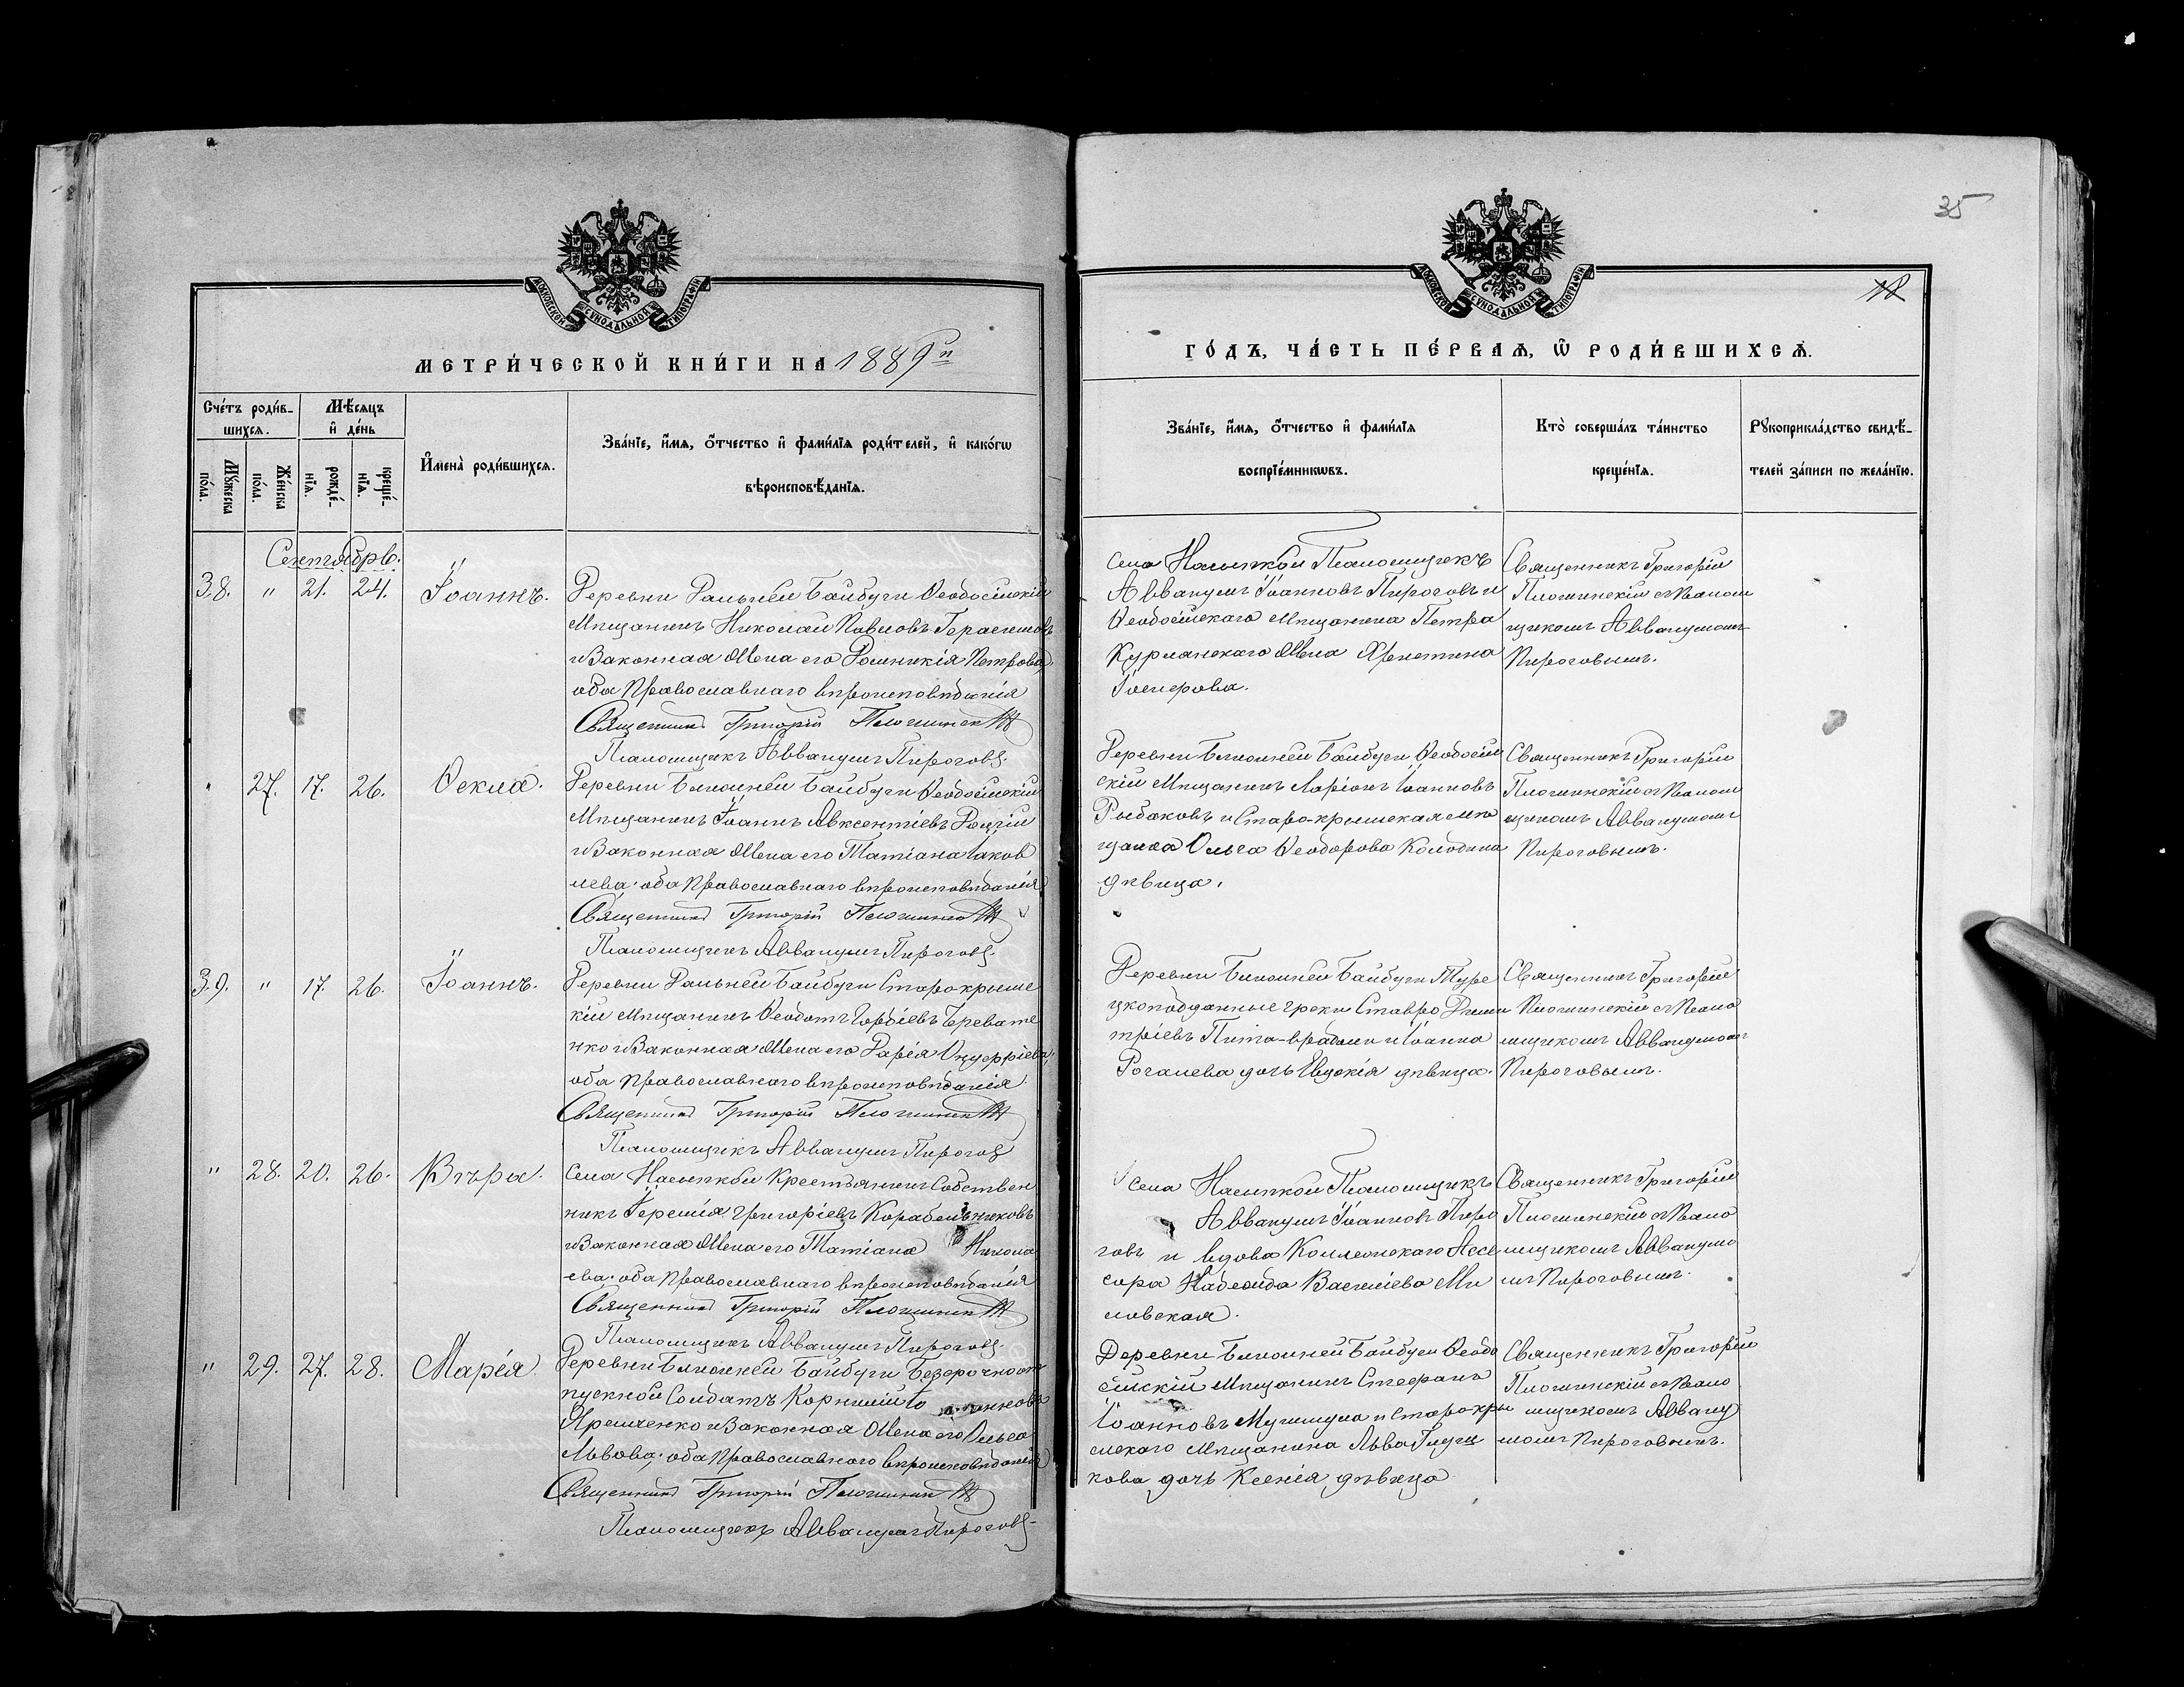 35
18
МОСКОВСКОЙ СѴНОДАЛЬНОЙ ТИПОГРАФІИ
МОСКОВСКОЙ СѴНОДАЛЬНОЙ ТИПОГРАФІИ
МЕТРИ́ЧЕСКОЙ КНИ́ГИ НА 1889й
ГО́ДЪ, ЧА́СТЬ ПЕ́РВАѦ, Ѡ҆ РОДИ́ВШИХСѦ.
Сче́тъ роди́вшихсѧ.
Мꙋ́жеска по́ла.
Же́нска по́ла.
Мѣ́сѧцъ и҆ де́нь
рожде́нїѧ.
креще́нїѧ.
И҆мена̀ роди́вшихсѧ.
Зва́нїе, и҆́мѧ, ѻ҆́тчество и҆ фами́лїѧ роди́телей, и҆ како́гѡ
вѣроисповѣ́данїѧ.
Зва́нїе, и҆́мѧ, ѻ҆́тчество и҆ фами́лїѧ
воспрїе́мникѡвъ.
Кто̀ соверша́лъ та́инство
креще́нїѧ.
Рꙋкоприкла́дство свидѣ́-
телей за́писи по жела́нїю.
Сентябрь.
38. " 21. 24. Іоаннъ.
Деревни Дальней Байбуги Ѳеодосійскій
Мѣщанинъ Николай Павловъ Герасимовъ
и Законная Жена его Домникія Петрова,
оба Православнаго вѣроисповѣданія
Священникъ Григорій
Псаломщикъ Аввакумъ Пироговъ.
Села Насыпкой Псаломщикъ
Аввакумъ Іоанновъ Пироговъ и
Ѳеодосійскаго Мѣщанина Петра
Курманскаго Жена Христина
Іосифова.
Священникъ Григорій
съ Псалом
щикомъ Аввакумомъ
Пироговымъ.
" 27. 17. 26. Ѳекла.
Деревни Ближней Байбуги Ѳеодосійскій
Мѣщанинъ Іоаннъ Авксентіевъ
и Законная Жена его Татіана Іаков
лева. оба Православнаго вѣроисповѣданія
Священникъ Григорій
Псаломщикъ Аввакумъ Пироговъ.
Деревни Ближней Байбуги Ѳеодосій
скій Мѣщанинъ Ларіонъ Іоанновъ
Рыбаковъ и Старо-крымская мѣ
щанка Ольга Ѳеодорова Колодина
дѣвица.
Священникъ Григорій
съ Псалом
щикомъ Аввакумомъ
Пироговымъ.
39. " 17. 26. Іоаннъ.
Деревни Дальней Байбуги Старокрымс
кій Мѣщанинъ Ѳеодотъ Гордіевъ Черевате
нко и Законная Жена его Дарія Онуфріева,
оба Православнаго вѣроисповѣданія.
Священникъ Григорій
Псаломщикъ Аввакумъ Пироговъ
Деревни Ближней Байбуги Туре
цкоподданные греки Ставро Дими
тріевъ и Іоанна
Рогалева дочь Евдокія дѣвица.
Священникъ Григорій
съ Псало
мщикомъ Аввакумомъ
Пироговымъ.
" 28. 20. 26. Вѣра.
Села Насыпкой Крестьянинъ Собствен
никъ Іеремія Григоріевъ Корабельниковъ
и Законная Жена его Татіана Никола
ева. оба Православнаго вѣроисповѣданія
Священникъ Григорій
Псаломщикъ Аввакумъ Пироговъ.
Села Насыпкой Псаломщикъ
Аввакумъ Іоанновъ Пиро
говъ и вдова Коллежскаго Ассе
сора Надежда Василіева Ми
ловская.
Священникъ Григорій
съ Псало
мщикомъ Аввакумо
мъ Пироговымъ.
" 29. 27. 28. Марія.
Деревни Ближней Байбуги Безсрочноот
пускной Солдатъ Корнилій
Яремченко и Законная Жена его Ольга
Львова, оба Православнаго вѣроисповѣданія
Священникъ Григорій
Псаломщикъ Аввакумъ Пироговъ.
Деревни Ближней Байбуги Ѳеодо
сійскій Мѣщанинъ Стефанъ
Іоанновъ и Старокры
мскаго Мѣщанина Льва
кова дочь Ксенія дѣвица.
Священникъ Григорій
съ Псало
мщикомъ Авваку
момъ Пироговымъ.